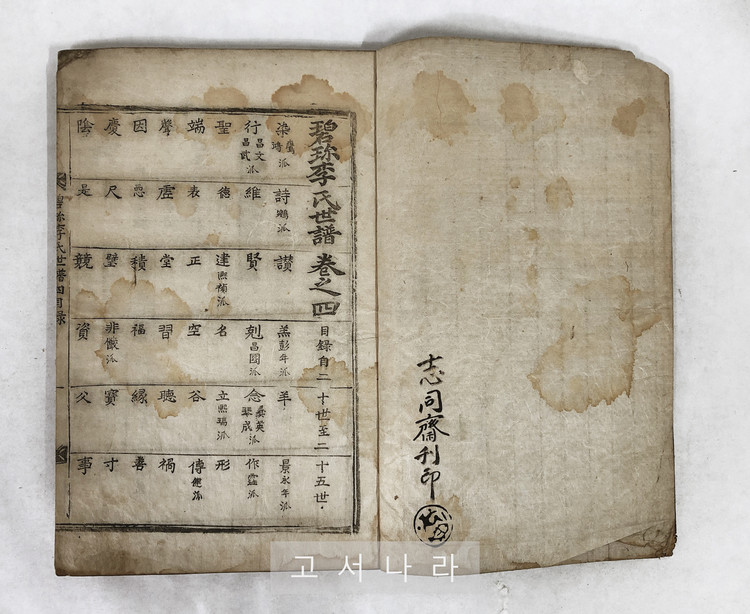 志同齋刊印
碧珍李氏世譜 卷之四 目錄自二十世至二十五世
染 詩 鵬派 讃 羔 彭年派 羊 景 永年派
行 昌文派 昌武派 維 賢 剋 昌國派 念 作
聖 德 建 名 立 熙瑞派 形
端 表 正 空 谷 傳
聲 虛 堂 習 聽 禍
因 惡 積 福 緣 善
慶 尺 璧 非 寶 寸
陰 是 競 資 父 事
碧珍李氏世譜四目錄
고서나라